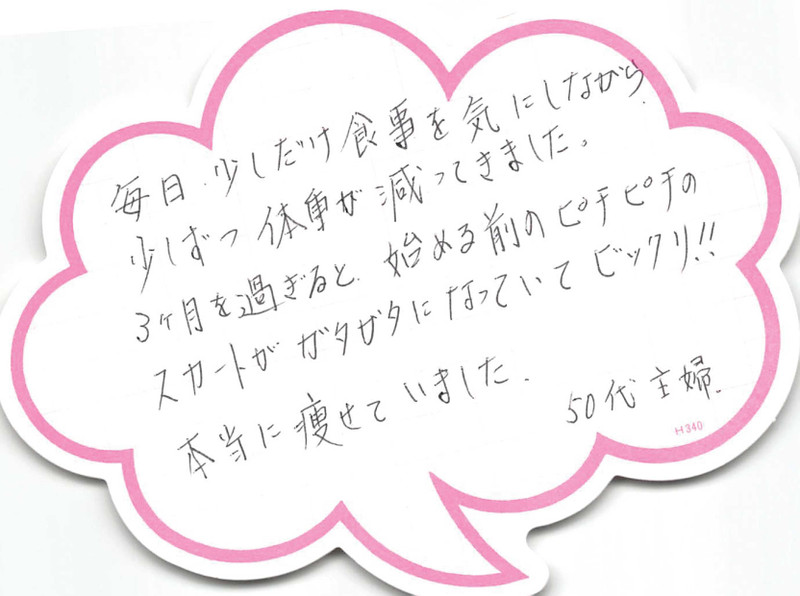 毎日、少しだけ食事を気にしながら
少しずつ体重が減ってきました。
3ヶ月を過ぎると、始める前のピチピチの
スカートがガタガタになっていてビックリ!!
本当に痩せていました。
50代主婦.
H340